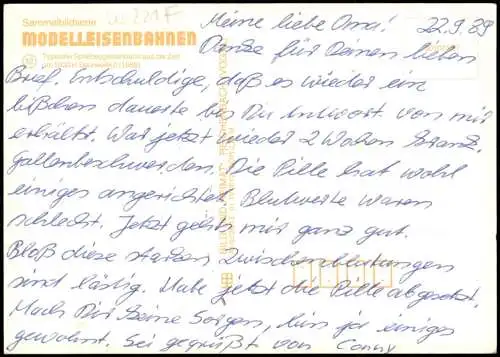 Sammelbildserie
MODELLEISENBAHNEN
Meine liebe Oma! 22.9.89
Danke für Deinen lieben
Brief. Entschuldige, daß es wieder ein
bißchen dauerte bis Du Antwort von mir
erhältst. War jetzt wieder 2 Wochen krank.
Gallenbeschwerden. Die Pille hat wohl
einiges angerichtet. Blutwerte waren
schlecht. Jetzt geht's mir ganz gut.
Bloß diese starken Zwischenblutungen
sind lästig. Habe jetzt die Pille abgesetzt.
Mach Dir keine Sorgen, bin ja einiges
gewohnt. Sei gegrüßt von Conny